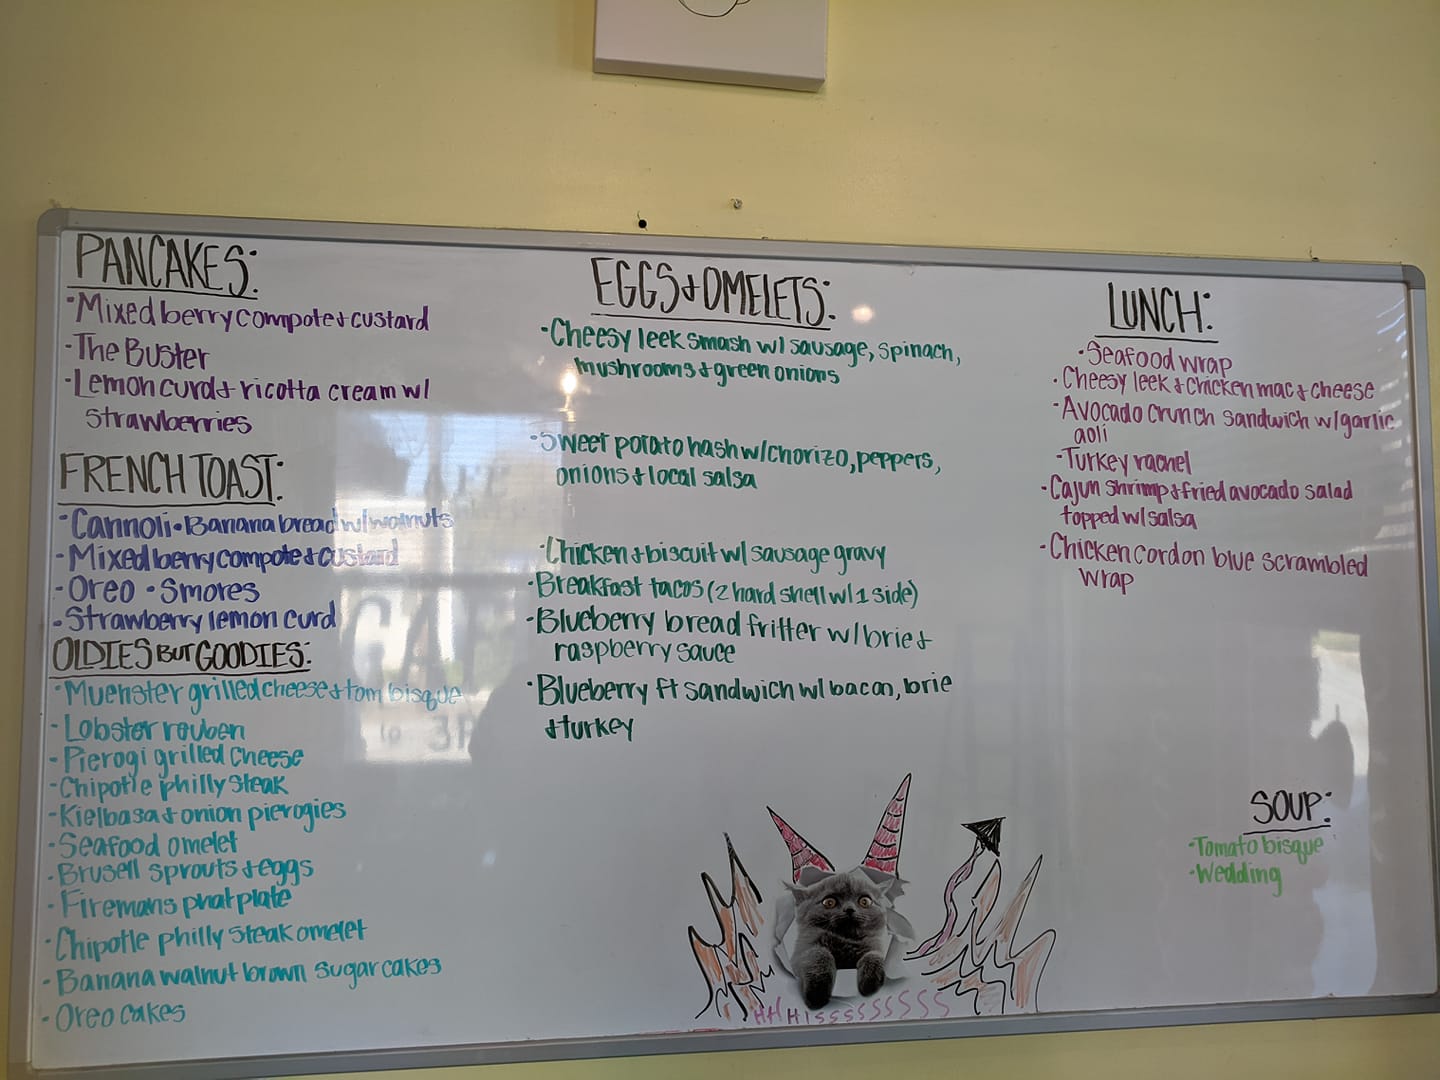 PANCAKES:
·Mixed berry compote & custard
·The Buster
·Lemon curd & ricotta cream w/
strawberries
FRENCH TOAST:
·Cannoli ·Banana bread w/ walnuts
·Mixed berry compote & custard
·Oreo ·Smores
·Strawberry lemon curd
OLDIES BUT GOODIES:
·Muenster grilled cheese & tom bisque
·Lobster reuben
·Pierogi grilled cheese
·Chipotle philly steak
·Kielbasa & onion pierogies
·Seafood omelet
·Brusell sprouts & eggs
·Firemans phat plate
·Chipotle philly steak omelet
·Banana walnut brown sugar cakes
·Oreo cakes
EGGS & OMELETS:
·Cheesy leek smash w/ sausage, spinach,
mushrooms & green onions
·Sweet potato hash w/ chorizo, peppers,
onions & local salsa
·Chicken & biscuit w/ sausage gravy
·Breakfast tacos (2 hard shell w/ 1 side)
·Blueberry bread fritter w/ brie &
raspberry sauce
·Blueberry ft sandwich w/ bacon, brie
& turkey
HHHISSSSSSSSSS
LUNCH:
·Seafood wrap
·Cheesy leek & chicken mac & cheese
·Avocado crunch sandwich w/ garlic
aoli
·Turkey rachel
·Cajun shrimp & fried avocado salad
topped w/ salsa
·Chicken cordon blue scrambled
wrap
SOUP:
·Tomato bisque
·Wedding